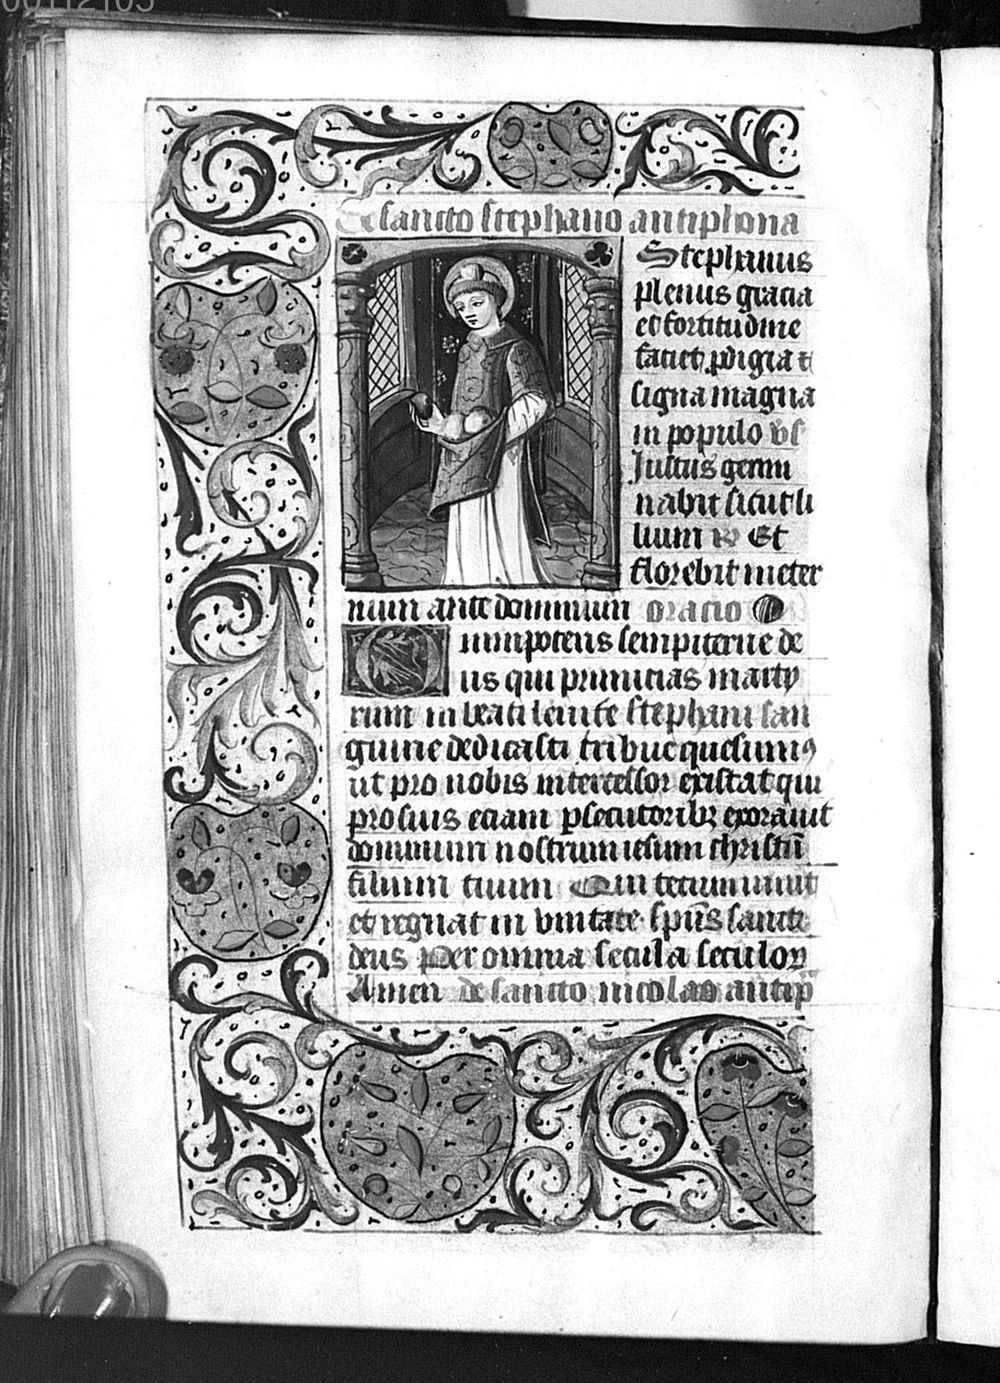 00112105
De sancto stephano antiphona
Stephanus
plenus gracia
et fortitudine
faciet pdigia et
signa magna
in populo vs
Justus germi
nabit sicut li
lium R Et
florebit in eter
num ante dominum oracio
Omnipotens sempiterne de
us qui primicias marty
rum in beati leuite stephani san
guine dedicasti tribue quesumus
ut pro nobis intercessor existat qui
pro suis eciam psecutoribz exorauit
dominum nostrum iesum christū
filium tuum Qui tecum uiuit
et regnat in vnitate spūs sancti
deus Per omnia secula seculoꝝ
Amen de sancto nicolao antip̄